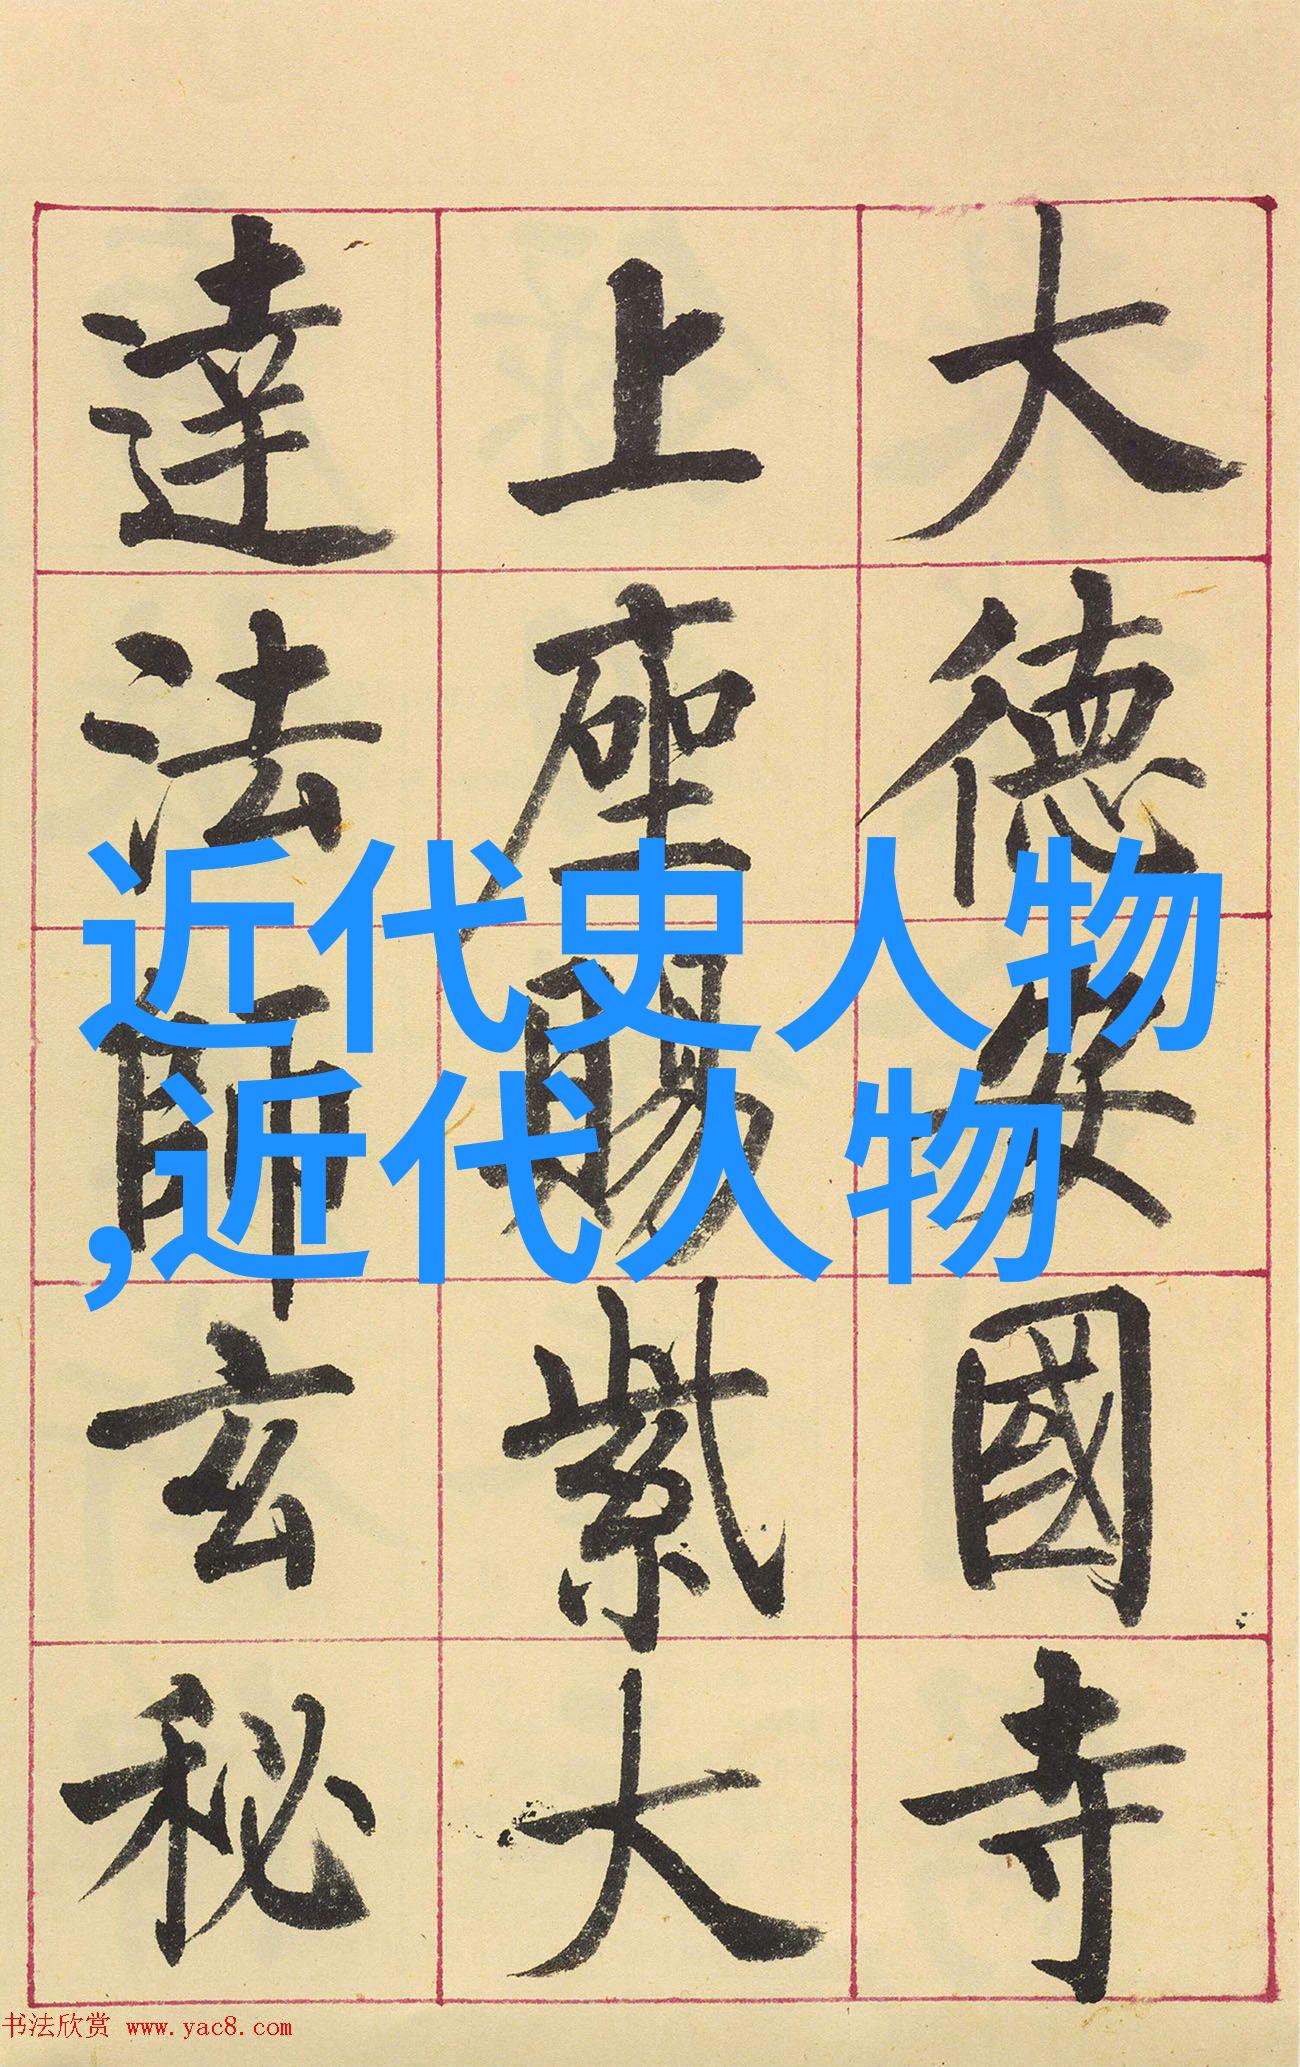 大德安國寺
上座賜紫大
達法師玄秘
近代史人物
,近代人物
书法欣赏 www.yac8.com